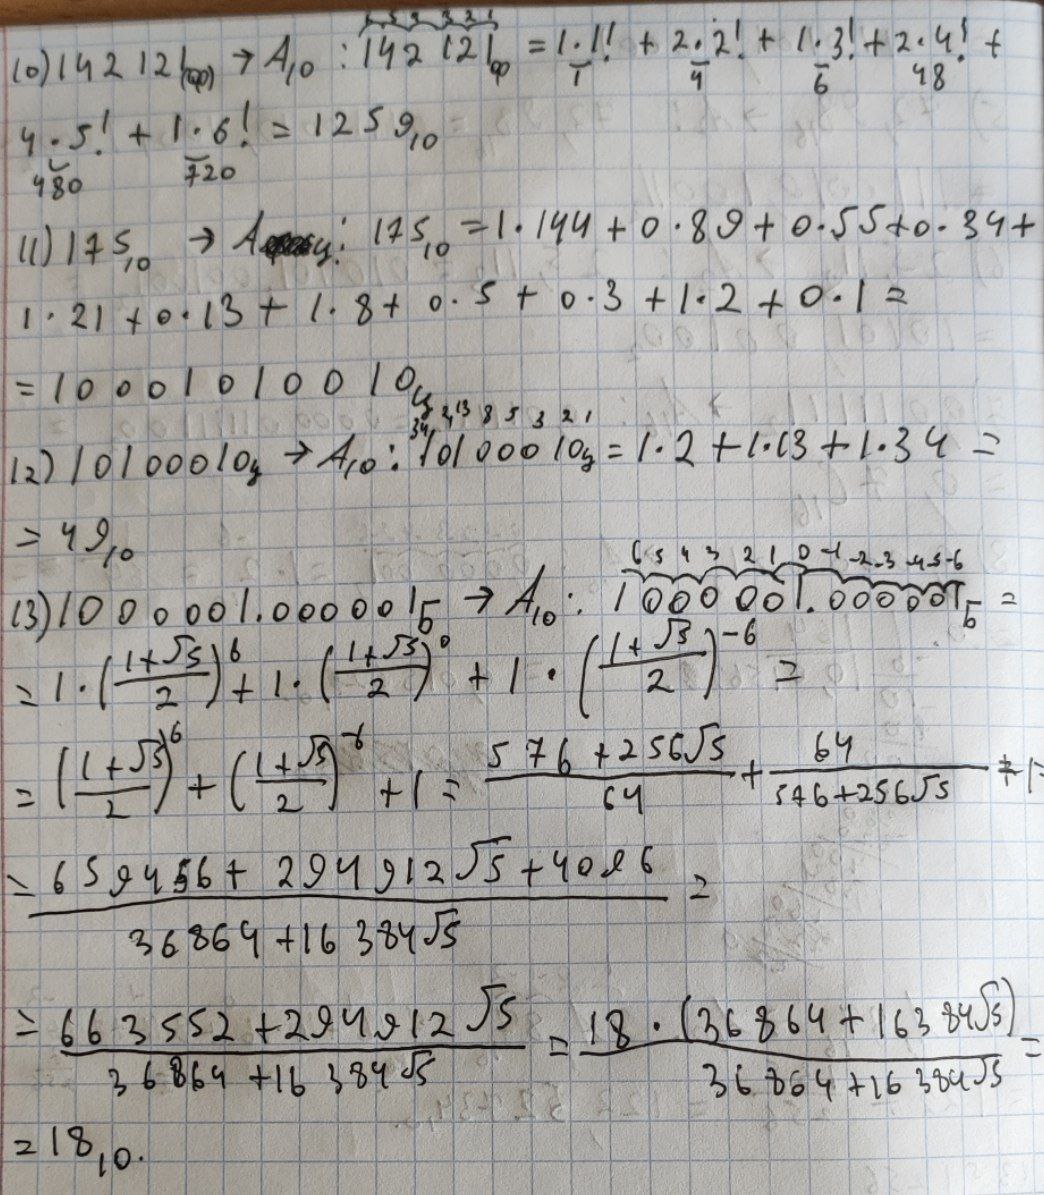 6 5 4 3 2 1
10) 142121(ф) → A₁₀ : 142121ф = 1·1! + 2·2! + 1·3! + 2·4! +
1 4 6 48
4·5! + 1·6! = 1259₁₀
480 720
11) 175₁₀ → Aц: 175₁₀ = 1·144 + 0·89 + 0·55 + 0·34 +
1·21 + 0·13 + 1·8 + 0·5 + 0·3 + 1·2 + 0·1 =
= 10001010010ц
34 21 13 8 5 3 2 1
12) 10100010ц → A₁₀: 10100010ц = 1·2 + 1·13 + 1·34 =
= 49₁₀
6 5 4 3 2 1 0 -1 -2 -3 -4 -5 -6
13) 1000001.000001Б → A₁₀: 1000001.000001Б =
= 1·((1+√5)/2)⁶ + 1·((1+√5)/2)⁰ + 1·((1+√5)/2)⁻⁶ =
= ((1+√5)/2)⁶ + ((1+√5)/2)⁻⁶ + 1 = (576+256√5)/64 + 64/(576+256√5) + 1=
= (659456 + 294912√5 + 4096)/(36864+16384√5) =
= (663552+294912√5)/(36864+16384√5) = (18·(36864+16384√5))/(36864+16384√5) =
= 18₁₀.